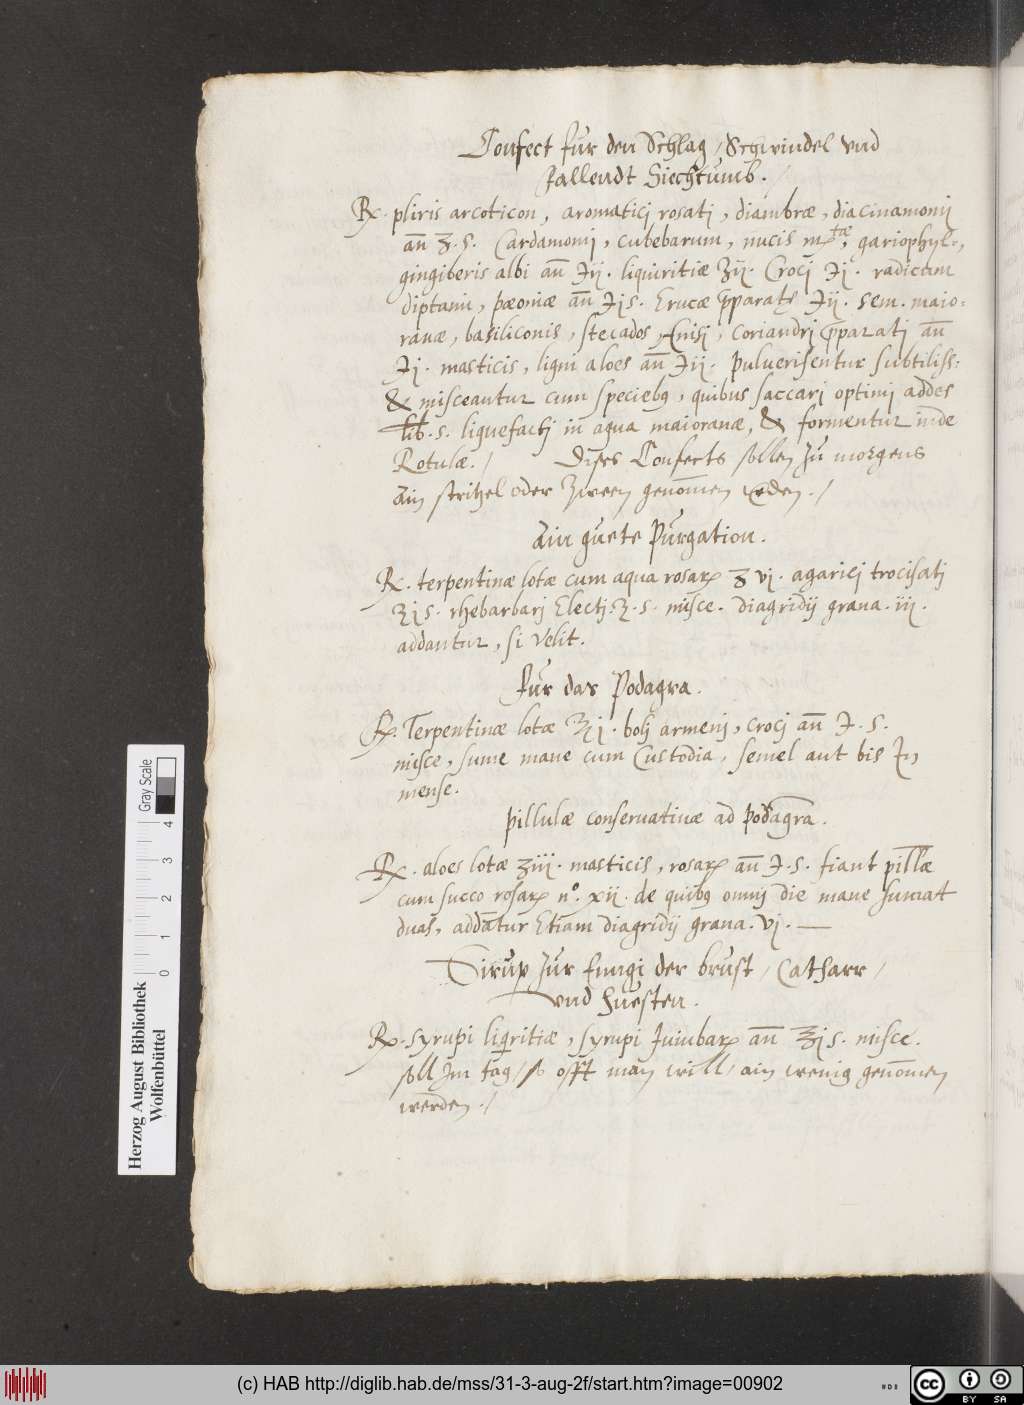 Confect für den Schlag / Schwindel vnd
fallendt Siechtumb. /
℞. pliris arcoticon, aromaticj rosatj, diambræ, diacinamonij
añ ʒ. s. Cardamomj, cubebarum, nucis m^tæ, gariophyl:,
gingiberis albi añ ℈ij. liquiritiæ ʒij. Crocj ℈j. radicum
diptami, pæoniæ añ ℈j s. Erucæ pparatę ℈ij. sem. maio=
ranæ, basiliconis, stecados, Anisj, coriandrj pparatj añ
℈j. masticis, ligni aloes añ ℈ij. puluerisentur subtiliss:
& misceantur cum speciebꝯ, quibus saccarj optimj addes
lib. s. liquefactj in aqua maioranæ, & formentur inde
Rotulæ. / Dises Confects sollen zu morgens
ain stritzel oder zween genommen werden. /
Ain guete Purgation.
℞. terpentinæ lotæ cum aqua rosaꝝ ʒ vj. agaricj trociscatj
ʒj s. rhebarbarj Electj. ʒ. s. misce. diagridij grana. iij.
addantur, si velit.
für das Podagra.
℞. Terpentinæ lotæ ʒj. bolj armenj, crocj añ ℈. s.
misce, sume mane cum Custodia, semel aut bis In
mense.
Pillulæ conseruatiuæ ad podagra.
℞. aloes lotæ ʒiij. masticis, rosaꝝ añ ℈. s. fiant pillæ
cum succo rosaꝝ nº. xij. de quibꝯ omnj die mane sumat
duas, addatur Etiam diagridij grana. vj. —
Sirup zur Enngi der brust / Catharr /
vnd huesten.
℞. syrupi liqiritiæ, syrupi Juiubaꝝ añ ʒj s. misce.
soll Im tag / so offt man will / ain wenig genommen
werden. /
Herzog August Bibliothek
Wolfenbüttel
Gray Scale
0 1 2 3 4
(c) HAB http://diglib.hab.de/mss/31-3-aug-2f/start.htm?image=00902
cc BY SA